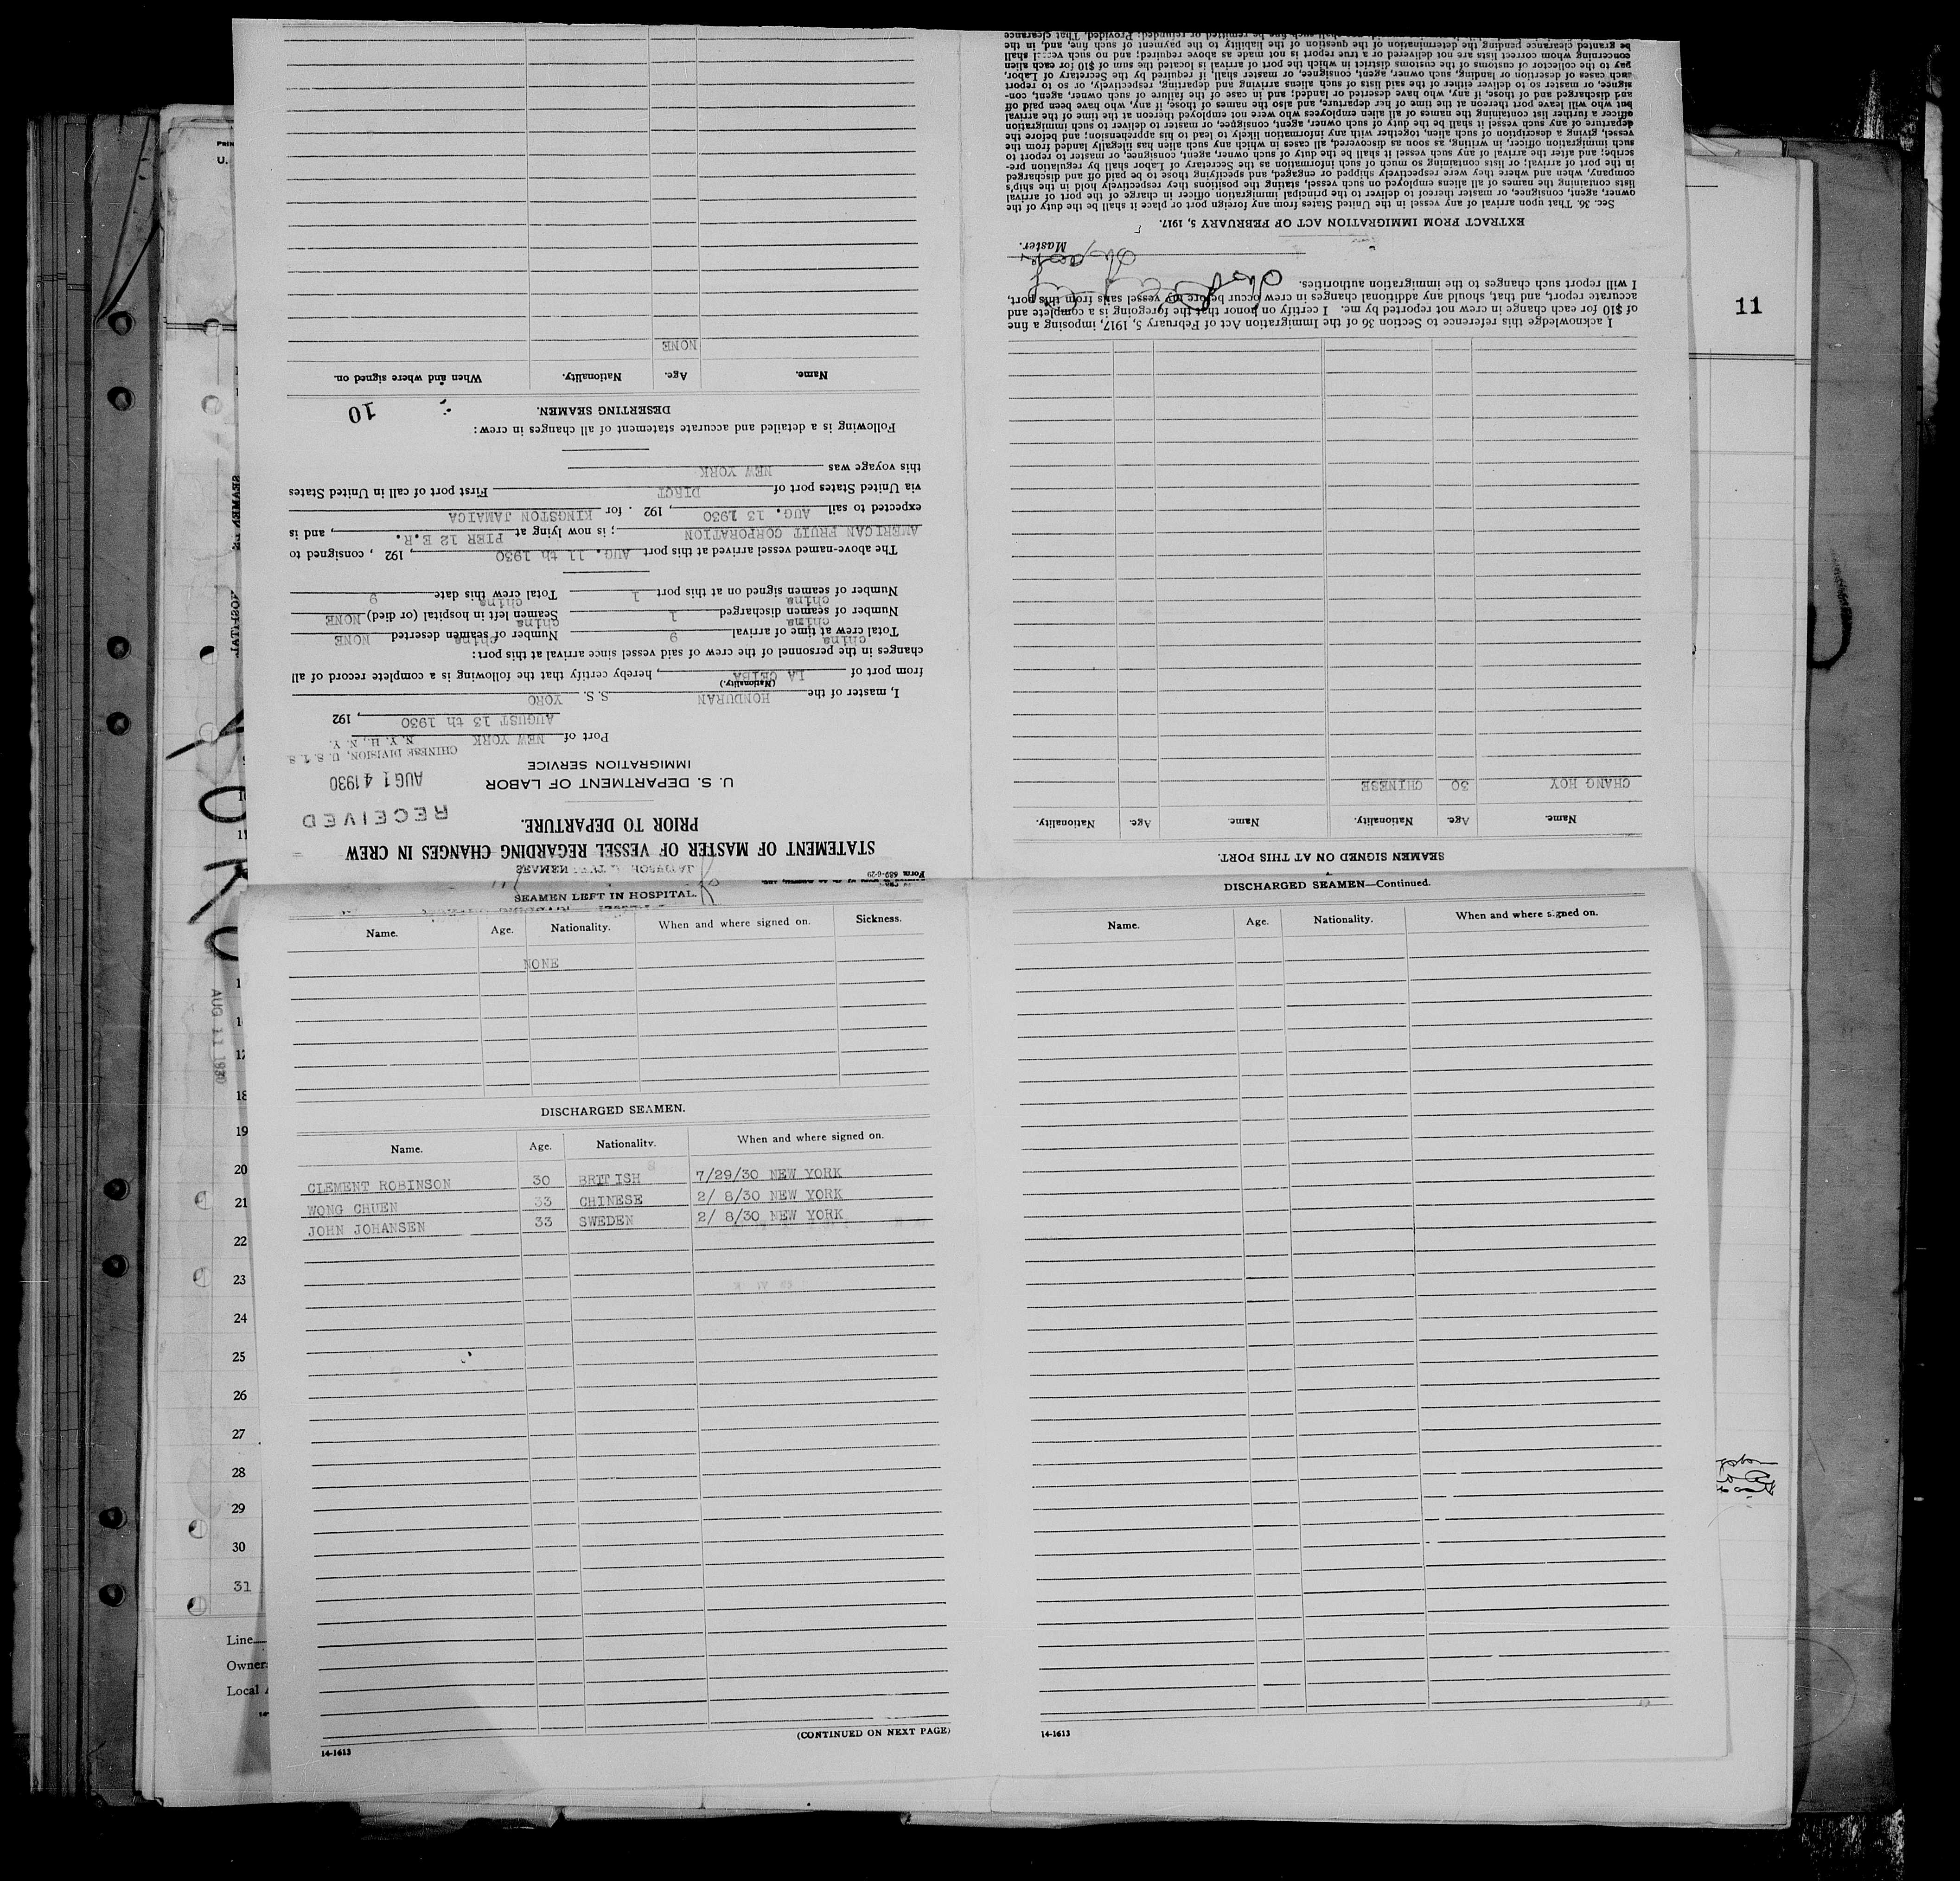 Form 689-6-29
STATEMENT OF MASTER OF VESSEL REGARDING CHANGES IN CREW
PRIOR TO DEPARTURE.
RECEIVED
AUG 14 1930
CHINESE DIVISION, U. S. I. S.
N. Y. H., N. Y.
U. S. DEPARTMENT OF LABOR
IMMIGRATION SERVICE
Port of NEW YORK
AUGUST 13 th 1930, 192
I, master of the HONDURAN S. S. YORO
(Nationality.)
from port of LA CEIBA, hereby certify that the following is a complete record of all
changes in the personnel of the crew of said vessel since arrival at this port:
china china
Total crew at time of arrival 9 Number of seamen deserted NONE
china china
Number of seamen discharged 1 Seamen left in hospital (or died) NONE
china china
Number of seamen signed on at this port 1 Total crew this date 9
The above-named vessel arrived at this port AUG. 11 th 1930, 192 , consigned to
AMERICAN FRUIT CORPORATION; is now lying at PIER 12 E.R., and is
expected to sail AUG. 13 1930, 192 . for KINGSTON JAMAICA
via United States port of DIRCT First port of call in United States
this voyage was NEW YORK
Following is a detailed and accurate statement of all changes in crew:
DESERTING SEAMEN.
10
Name. Age. Nationality. When and where signed on.
NONE
SEAMEN SIGNED ON AT THIS PORT.
Name. Age. Nationality. Name. Age. Nationality.
CHANG HOY 30 CHINESE
I acknowledge this reference to Section 36 of the Immigration Act of February 5, 1917, imposing a fine
of $10 for each change in crew not reported by me. I certify on honor that the foregoing is a complete and
accurate report, and that, should any additional changes in crew occur before my vessel sails from this port,
I will report such changes to the immigration authorities.
Master.
EXTRACT FROM IMMIGRATION ACT OF FEBRUARY 5, 1917.
Sec. 36. That upon arrival of any vessel in the United States from any foreign port or place it shall be the duty of the
owner, agent, consignee, or master thereof to deliver to the principal immigration officer in charge of the port of arrival
lists containing the names of all aliens employed on such vessel, stating the positions they respectively hold in the ship's
company, when and where they were respectively shipped or engaged, and specifying those to be paid off and discharged
in the port of arrival or lists containing so much of such information as the Secretary of Labor shall by regulation pre-
scribe; and after the arrival of any such vessel it shall be the duty of such owner, agent, consignee, or master to report to
such immigration officer, in writing, as soon as discovered, all cases in which any such alien has illegally landed from the
vessel, giving a description of such alien, together with any information likely to lead to his apprehension; and before the
departure of any such vessel it shall be the duty of such owner, agent, consignee, or master to deliver to such immigration
officer a further list containing the names of all alien employees who were not employed thereon at the time of the arrival
but who will leave port thereon at the time of her departure, and also the names of those, if any, who have been paid off
and discharged and of those, if any, who have deserted or landed; and in case of the failure of such owner, agent, con-
signee, or master so to deliver either of the said lists of such aliens arriving and departing, respectively, or so to report
such cases of desertion or landing, such owner, agent, consignee, or master shall, if required by the Secretary of Labor,
pay to the collector of customs of the customs district in which the port of arrival is located the sum of $10 for each alien
concerning whom correct lists are not delivered or a true report is not made as above required; and no such vessel shall
be granted clearance pending the determination of the question of the liability to the payment of such fine, and, in the
shall such fine be remitted or refunded: Provided, That clearance
SEAMEN LEFT IN HOSPITAL.
Name. Age. Nationality. When and where signed on. Sickness.
NONE
DISCHARGED SEAMEN.
Name. Age. Nationality. When and where signed on.
CLEMENT ROBINSON 30 BRTTISH 7/29/30 NEW YORK
WONG CHUEN 33 CHINESE 2/ 8/30 NEW YORK
JOHN JOHANSEN 33 SWEDEN 2/ 8/30 NEW YORK
(CONTINUED ON NEXT PAGE)
14-1613
DISCHARGED SEAMEN—Continued.
Name. Age. Nationality. When and where signed on.
14-1613
11
AUG 11 1930
18
19
20
21
22
23
24
25
26
27
28
29
30
31
Line
Owner
Local